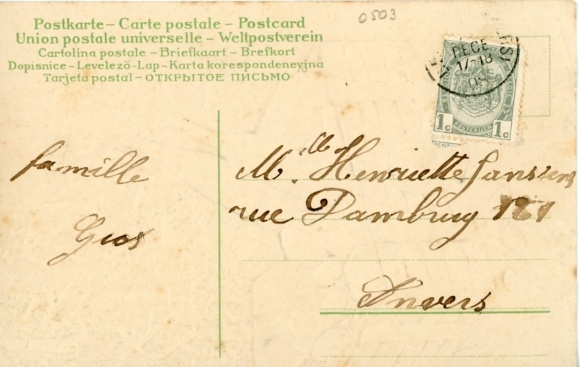 0503
Postkarte – Carte postale – Postcard
Union postale universelle – Weltpostverein
Cartolina postale – Briefkaart – Brefkort
Dopisnice – Levelező-Lap – Karta korespondencyjna
Tarjeta postal – ОТКРЫТОЕ ПИСЬМО
DECE
17-18
1c 1c
famille
Mlle Henriette Janssens
rue Dambrug 121
Anvers